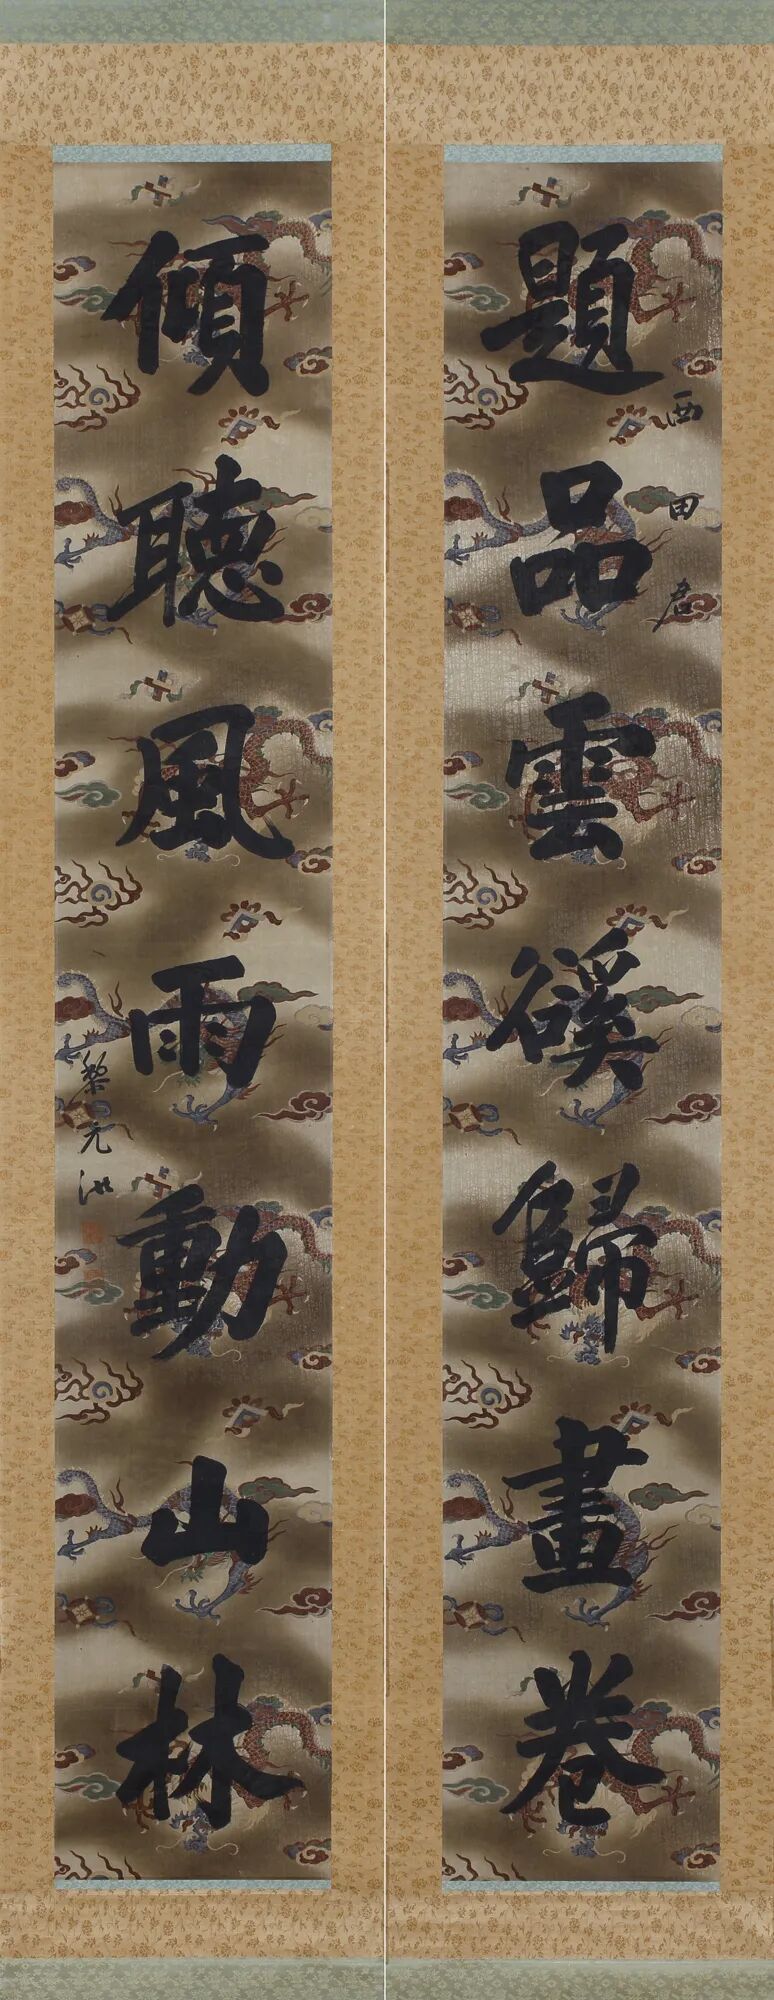 題品雲谿歸畫卷
西田君
傾聽風雨動山林
黎元洪